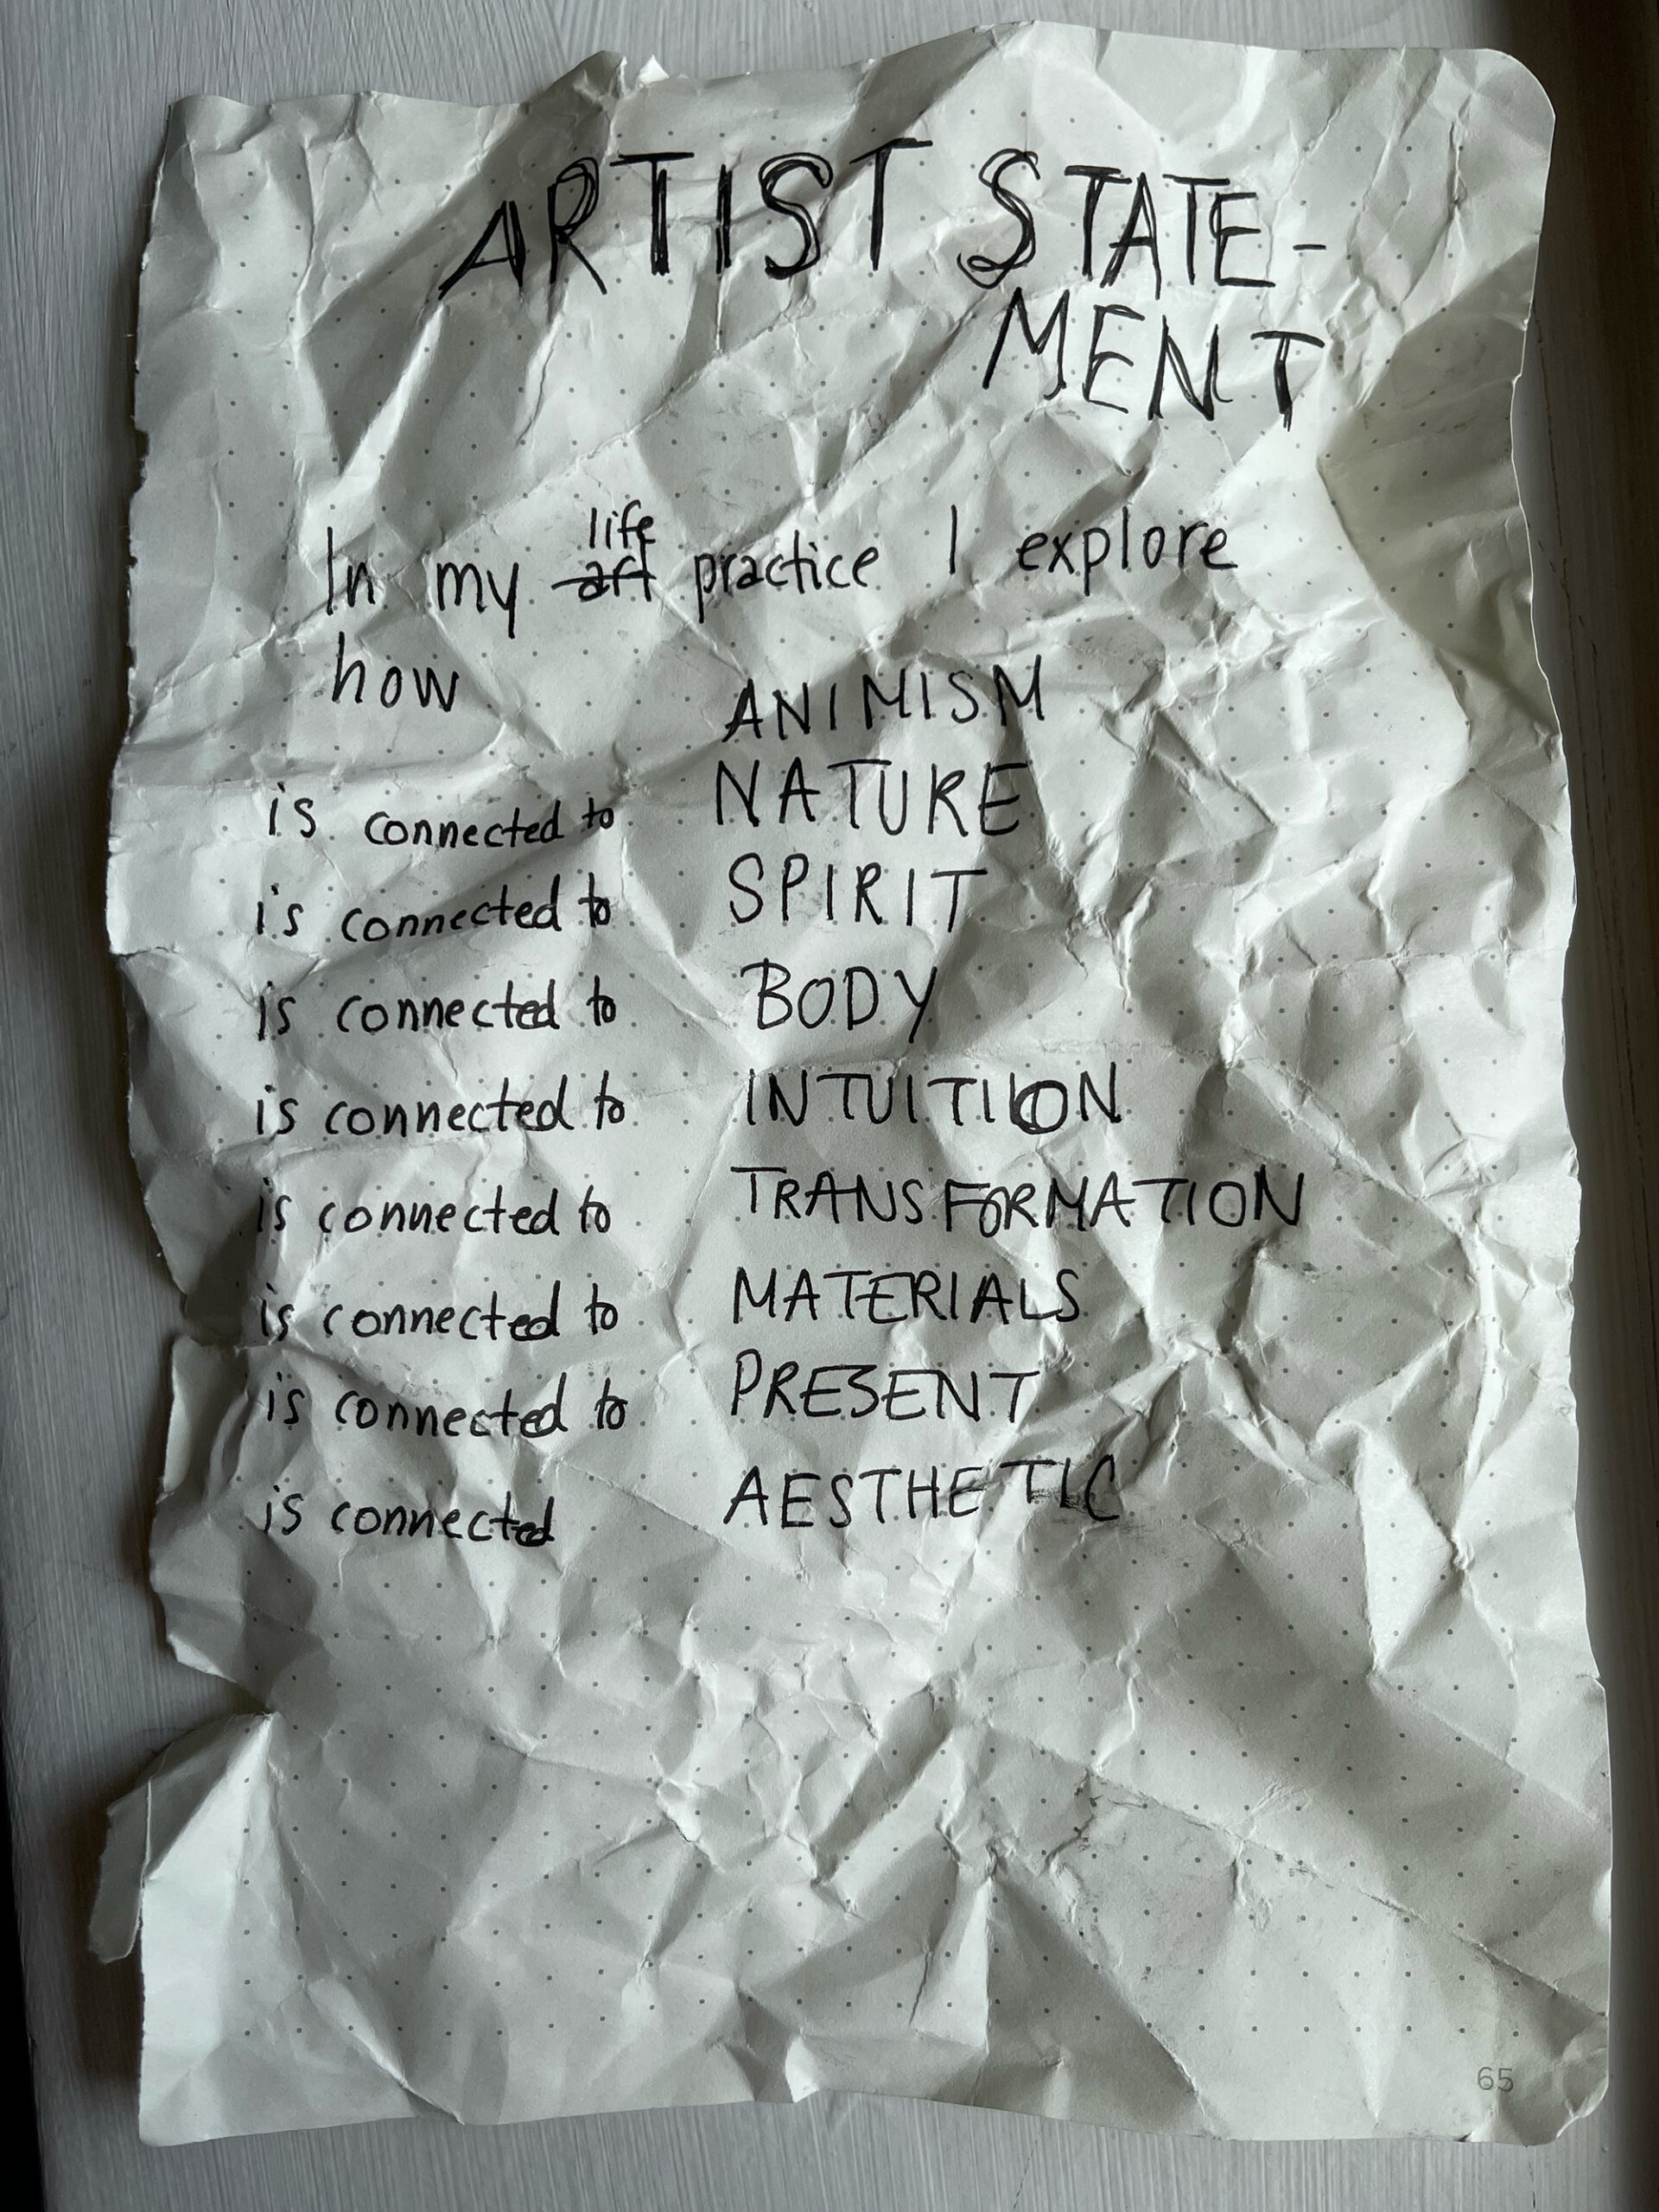 ARTIST STATE-
MENT
In my life art practice I explore
how ANIMISM
is connected to NATURE
is connected to SPIRIT
is connected to BODY
is connected to INTUITION
is connected to TRANSFORMATION
is connected to MATERIALS
is connected to PRESENT
is connected AESTHETIC
65